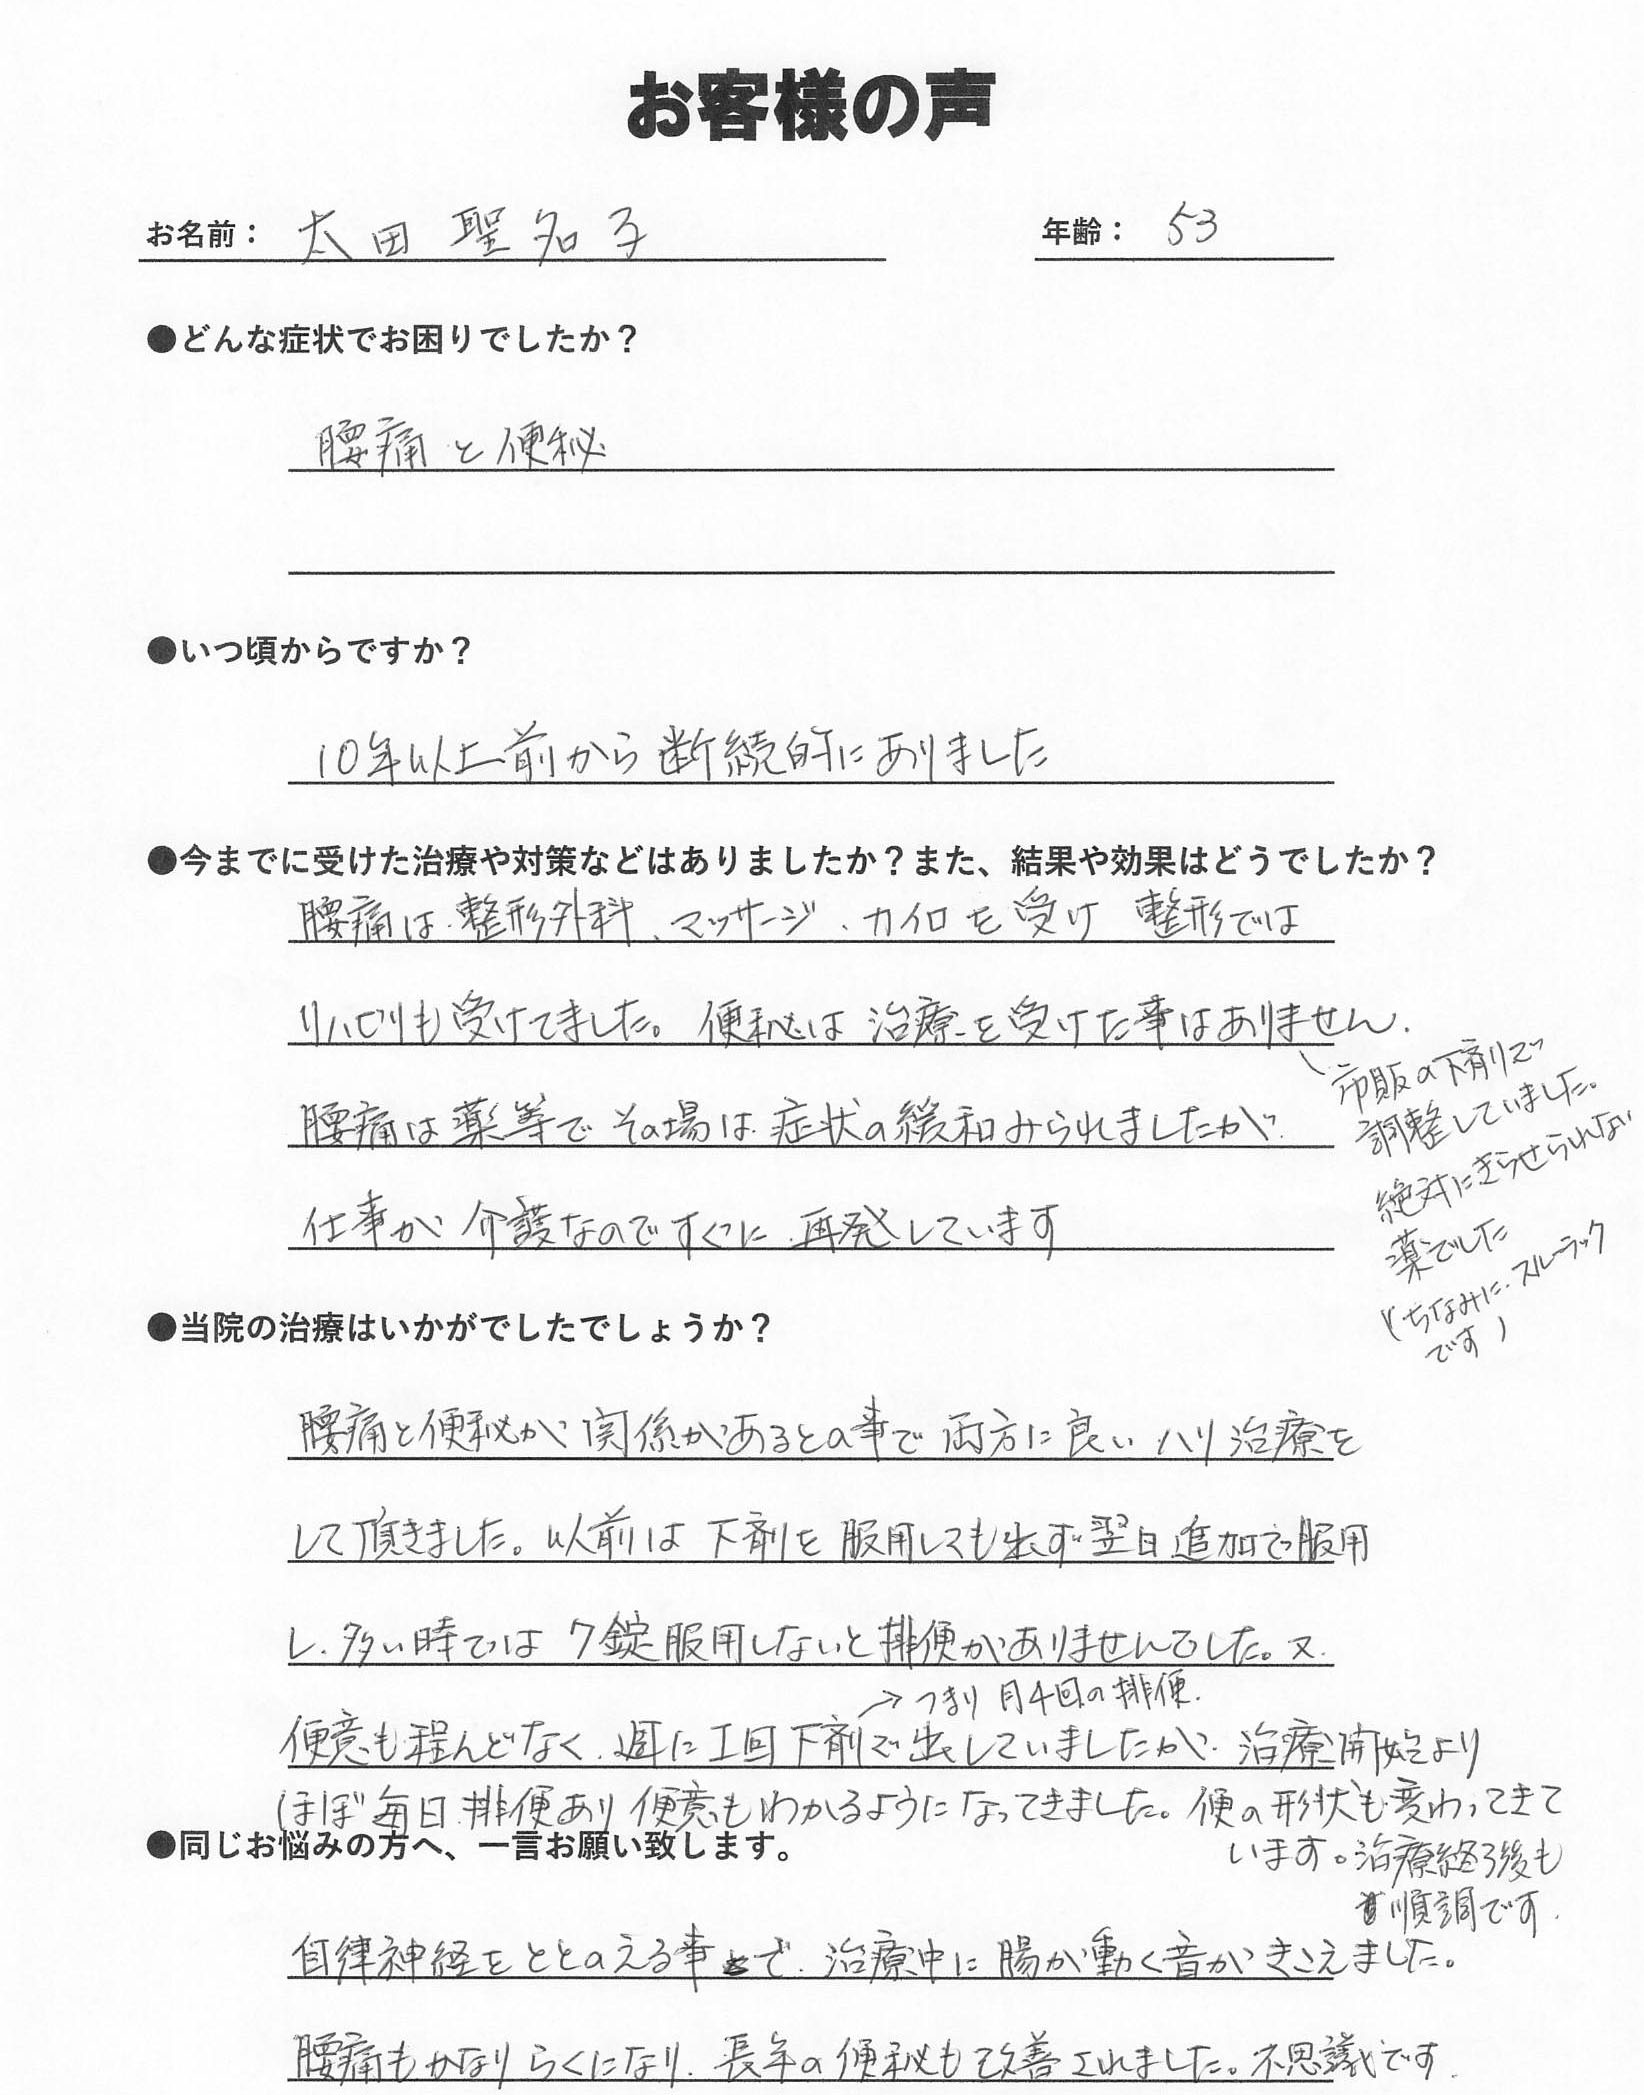 お客様の声
お名前： 太田 聖名子 年齢： 53
●どんな症状でお困りでしたか？
腰痛と便秘
●いつ頃からですか？
10年以上前から断続的にありました
●今までに受けた治療や対策などはありましたか？また、結果や効果はどうでしたか？
腰痛は、整形外科、マッサージ、カイロを受け 整形では
リハビリも受けてました。便秘は 治療を受けた事はありません.
市販の下剤で
調整していました。
絶対にきらせられない
薬でした
(ちなみに、スルーラック
です)
腰痛は薬等でその場は症状の緩和みられましたが、
仕事が 介護なのですぐに 再発しています
●当院の治療はいかがでしたでしょうか？
腰痛と便秘が関係があるとの事で両方に良いハリ治療を
して頂きました。以前は下剤を服用しても出ず翌日追加で服用
し、多い時では7錠服用しないと排便がありませんでした。又、
→つまり 月4回の排便.
便意も程んどなく、週に1回下剤で出していましたが、治療開始より
ほぼ毎日排便あり便意もわかるようになってきました。便の形状も変わってきて
います。治療終了後も
順調です.
●同じお悩みの方へ、一言お願い致します。
自律神経をととのえる事で、治療中に腸が動く音がきこえました。
腰痛もかなりらくになり、長年の便秘も改善されました。不思議です.